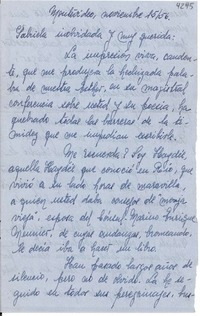 4295
Montevideo, noviembre 15/54.
Gabriela inolvidada y muy querida:
La impresión viva, canden-
te, que me produjera la prolongada pala-
bra de nuestra Esther, en su magistral
conferencia sobre usted y su poesía, ha
quebrado todas las barreras de la ti-
midez que me impedían escribirle.
Me recuerda? Soy Haydée,
aquella Haydée que conoció en Río, que
vivió a su lado horas de maravilla,
a quien usted daba consejos de "monja
vieja", esposa del Cónsul Marino Enrique
Meunier, de cuyas andanzas, bromeando,
le decía iba a hacer un libro.
Han pasado largos años de
silencio, pero no de olvido. La he se-
guido en todos sus peregrinajes, bus-